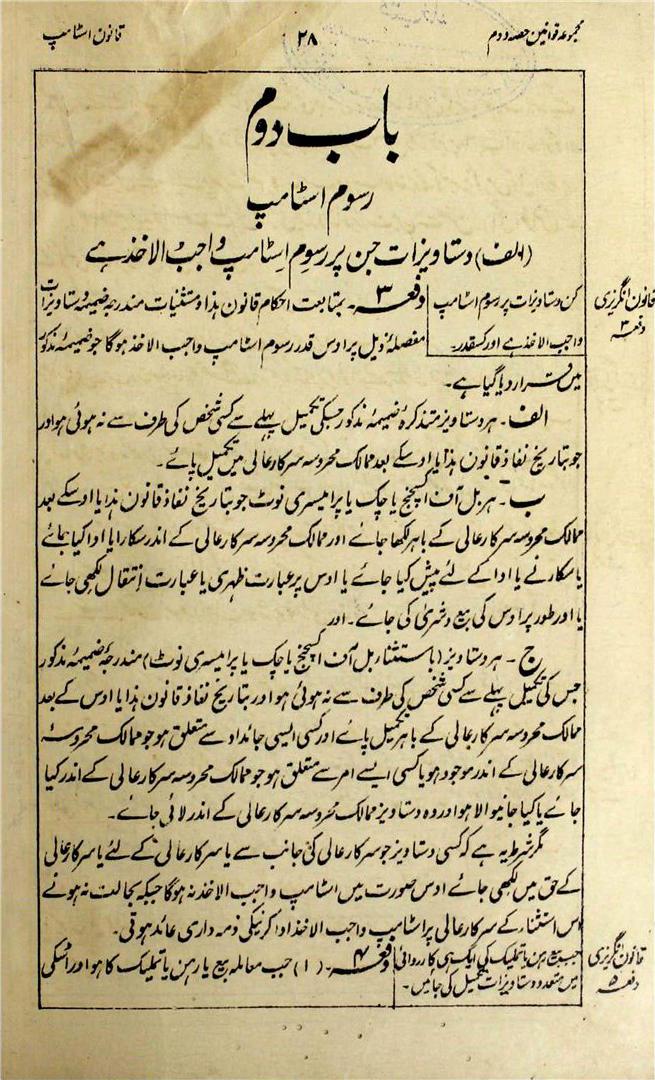 مجموعہ قوانین حصہ دوم
۲۸
قانون اسٹامپ
باب دوم
رسوم اسٹامپ
(الف) دستاویزات جن پر رسوم اسٹامپ واجب الاخذ ہے
قانون انگریزی
دفعہ ۳
کن دستاویزات پر رسوم اسٹامپ
واجب الاخذ ہے اور کسقدر۔
دفعہ ۳۔ بمتابعت احکام قانون ہذا و مستثنیات مندرجہ ضمیمہ دستاویزات
مفصلۂ ذیل پر اوس قدر رسوم اسٹامپ واجب الاخذ ہوگا جو ضمیمۂ مذکور
میں قرار دیا گیا ہے۔
الف۔ ہر دستاویز متذکرۂ ضمیمۂ مذکور جسکی تکمیل پہلے سے کسی شخص کی طرف سے نہ ہوئی ہو اور
جو بتاریخ نفاذ قانون ہذا یا اوسکے بعد ممالک محروسہ سرکار عالی میں تکمیل پائے۔
ب۔ ہر بل آف اکسچنج یا چک یا پرامیسری نوٹ جو بتاریخ نفاذ قانون ہذا یا اوسکے بعد
ممالک محروسہ سرکار عالی کے باہر لکھا جائے اور ممالک محروسہ سرکار عالی کے اندر سکارا یا ادا کیا جائے
یا سکارنے یا ادا کے لئے پیش کیا جائے یا اوس پر عبارت ظہری یا عبارت انتقال لکھی جائے
یا اور طور پر اوس کی بیع و شریٰ کی جائے۔ اور
ج۔ ہر دستاویز (باستثناء بل آف اکسچنج یا چک یا پرامیسری نوٹ) مندرجۂ ضمیمۂ مذکور
جس کی تکمیل پہلے سے کسی شخص کی طرف سے نہ ہوئی ہو اور بتاریخ نفاذ قانون ہذا یا اوس کے بعد
ممالک محروسہ سرکار عالی کے باہر تکمیل پائے اور کسی ایسی جائداد سے متعلق ہو جو ممالک محروسۂ
سرکار عالی کے اندر موجود ہو یا کسی ایسے امر سے متعلق ہو جو ممالک محروسہ سرکار عالی کے اندر کیا
جائے یا کیا جانیوالا ہو اور وہ دستاویز ممالک محروسہ سرکار عالی کے اندر لائی جائے۔
مگر شرط یہ ہے کہ کسی دستاویز جو سرکار عالی کی جانب سے یا سرکار عالی کے لئے یا سرکار عالی
کے حق میں لکھی جائے اوس صورت میں اسٹامپ واجب الاخذ نہ ہوگا جبکہ بحالت نہ ہونے
اس استثناء کے سرکار عالی پر اسٹامپ واجب الاخذ ادا کرنیکی ذمہ داری عائد ہوتی۔
قانون انگریزی
دفعہ ۵
جب بیع رہن یا تملیک کی ایک ہی کارروائی
میں متعدد دستاویزات تکمیل کی جائیں۔
دفعہ ۴۔ (۱) جب معاملہ بیع یا رہن یا تملیک کا ہو اور اسکی